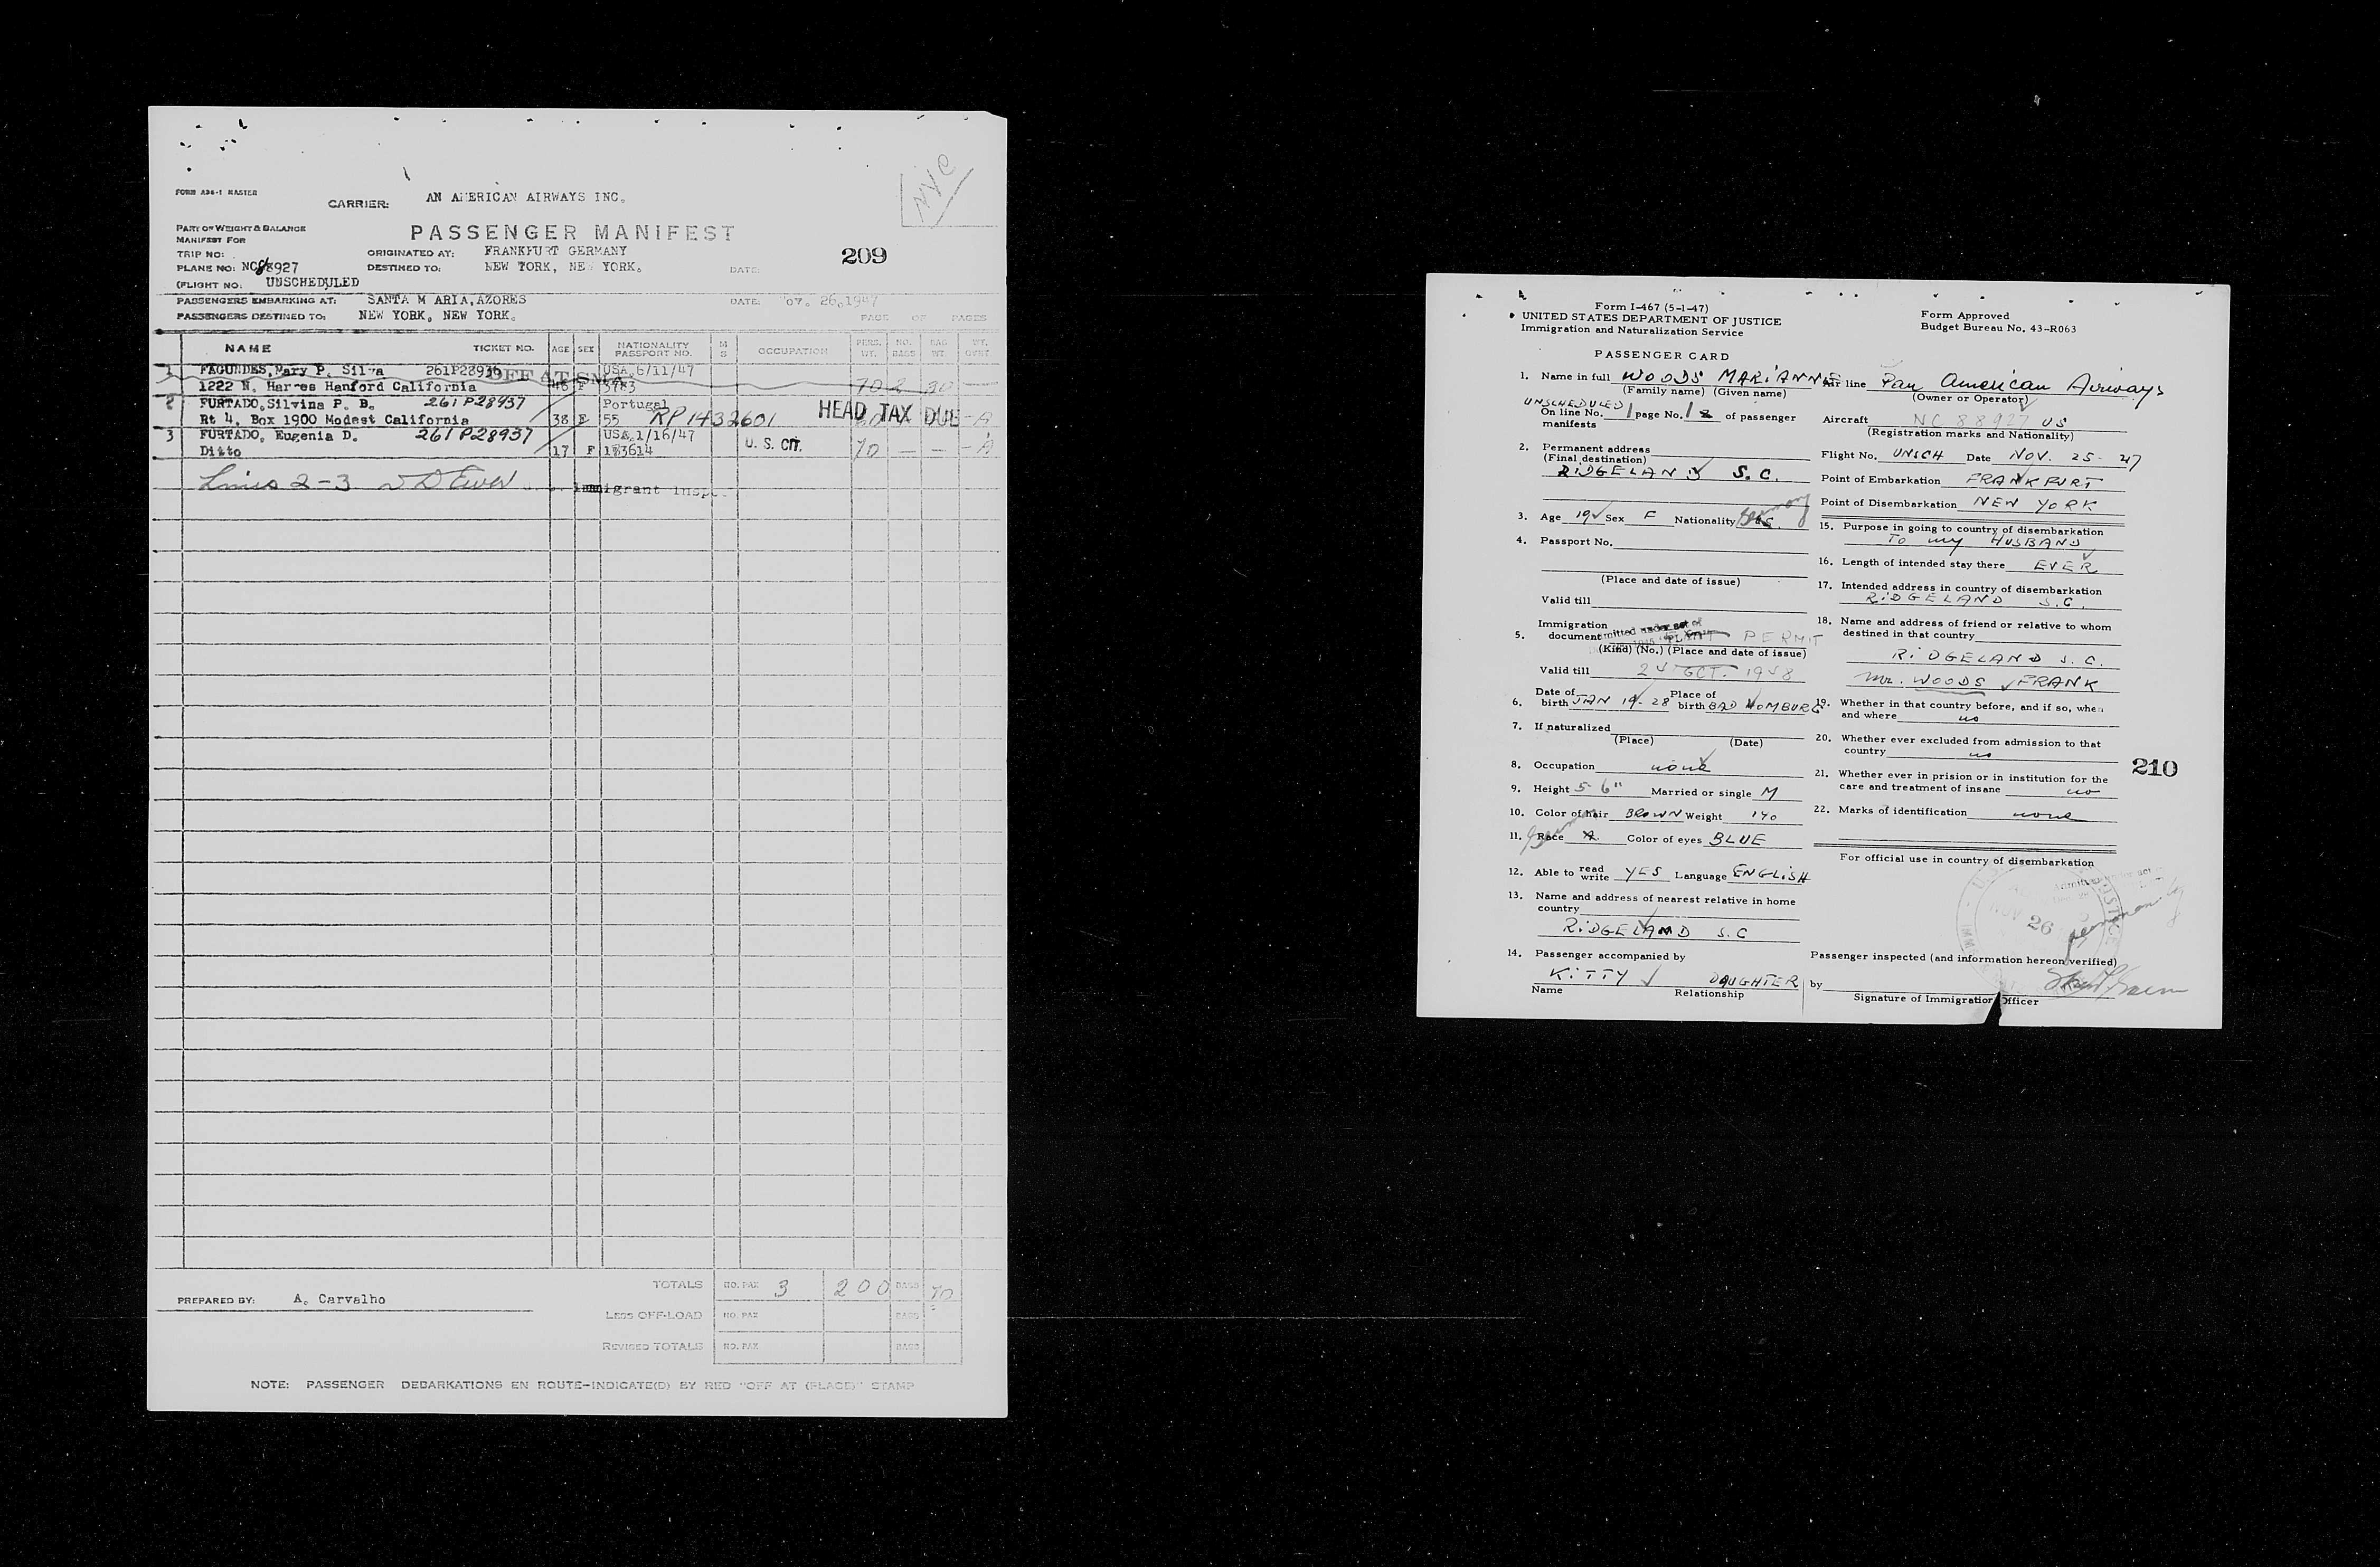 NYC
FORM A36-1 MASTER
CARRIER: AN AMERICAN AIRWAYS INC.
PART OF WEIGHT & BALANCE
MANIFEST FOR
PASSENGER MANIFEST
209
TRIP NO:
ORIGINATED AT: FRANKFURT GERMANY
PLANE NO: NC88927
DESTINED TO: NEW YORK, NEW YORK.
DATE:
(FLIGHT NO: UNSCHEDULED
PASSENGERS EMBARKING AT: SANTA M ARIA, AZORES
DATE: 26,1947
PASSENGERS DESTINED TO: NEW YORK, NEW YORK.
PAGE OF PAGES
NAME TICKET NO. AGE SEX NATIONALITY PASSPORT NO. M S OCCUPATION PERS. WT. NO. BAGS BAG WT.
1 FAGUNDES, Mary P. Silva 261P28936 USA, 6/11/47
OFF AT SMA
1222 N. Harres Hanford California 46 F 3783 70 2 30
2 FURTADO, Silvina P. B. 261P28937 Portugal
Rt 4, Box 1900 Modest California 38 F 55 RP1432601 HEAD TAX DUE
3 FURTADO, Eugenia D. 261P28937 USA, 1/16/47
Ditto 17 F 183614 U. S. CIT. 70 — —
Lines 2-3 immigrant insp.
TOTALS NO. PAX 3 200 BAGS 70
PREPARED BY: A. Carvalho
LESS OFF-LOAD NO. PAX BAGS
REVISED TOTALS NO. PAX BAGS
NOTE: PASSENGER DEBARKATIONS EN ROUTE-INDICATE(D) BY RED "OFF AT (PLACE)" STAMP
Form I-467 (5-1-47)
UNITED STATES DEPARTMENT OF JUSTICE
Immigration and Naturalization Service
Form Approved
Budget Bureau No. 43-R063
PASSENGER CARD
1. Name in full WOODS MARIANNE
(Family name) (Given name)
UNSCHEDULED
On line No. 1 page No. 1 2 of passenger
manifests
2. Permanent address
(Final destination)
RIDGELAND S.C.
3. Age 19 Sex F Nationality Germany
4. Passport No.
(Place and date of issue)
Valid till
Immigration
5. document PERMIT
(Kind) (No.) (Place and date of issue)
Valid till 24 OCT. 1948
6. Date of birth JAN 19-28 Place of birth BAD HOMBURG
7. If naturalized
(Place) (Date)
8. Occupation none
9. Height 5-6" Married or single M
10. Color of hair BROWN Weight 140
11. Race German Color of eyes BLUE
12. Able to read write YES Language ENGLISH
13. Name and address of nearest relative in home
country
RIDGELAND S.C
14. Passenger accompanied by
KITTY DAUGHTER
Name Relationship
Air line Pan American Airways
(Owner or Operator)
Aircraft NC 88927 US
(Registration marks and Nationality)
Flight No. UNSCH Date NOV. 25-47
Point of Embarkation FRANKFURT
Point of Disembarkation NEW YORK
15. Purpose in going to country of disembarkation
To my HUSBAND
16. Length of intended stay there EVER
17. Intended address in country of disembarkation
RIDGELAND S.C.
18. Name and address of friend or relative to whom
destined in that country
RIDGELAND S.C.
Mr. WOODS FRANK
19. Whether in that country before, and if so, when
and where no
20. Whether ever excluded from admission to that
country no
210
21. Whether ever in prision or in institution for the
care and treatment of insane no
22. Marks of identification none
For official use in country of disembarkation
NOV 26
Passenger inspected (and information hereon verified)
by
Signature of Immigration Officer